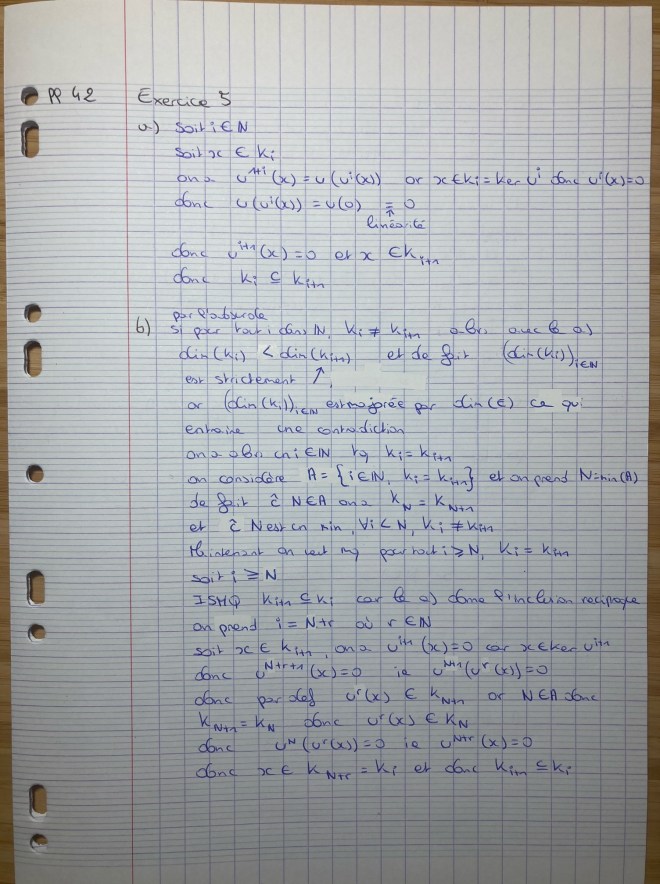 PP 42 Exercice 5
a) Soit i ∈ ℕ
Soit x ∈ Ki
on a u^{1+i}(x) = u(u^i(x)) or x ∈ Ki = Ker u^i donc u^i(x)=0
donc u(u^i(x)) = u(0) = 0
↑
linéarité
donc u^{i+1}(x) = 0 et x ∈ K_{i+1}
donc Ki ⊆ K_{i+1}
par l'absurde
b) Si pour tout i dans ℕ, Ki ≠ K_{i+1} alors avec le a)
dim(Ki) < dim(K_{i+1}) et de fait (dim(Ki))_{i∈ℕ}
est strictement ↗
or (dim(Ki))_{i∈ℕ} est majorée par dim(E) ce qui
entraine une contradiction
on a alors un i ∈ ℕ tq Ki = K_{i+1}
on considère A = {i ∈ ℕ, Ki = K_{i+1}} et on prend N = min(A)
de fait c̄ N ∈ A on a K_N = K_{N+1}
et c̄ N est un min, ∀i < N, Ki ≠ K_{i+1}
Maintenant on veut mq pour tout i ⩾ N, Ki = K_{i+1}
soit i ⩾ N
ISMQ K_{i+1} ⊆ Ki car le a) donne l'inclusion reciproque
on prend i = N+r où r ∈ ℕ
soit x ∈ K_{i+1}, on a u^{i+1}(x) = 0 car x ∈ ker u^{i+1}
donc u^{N+r+1}(x) = 0 ie u^{N+1}(u^r(x)) = 0
donc par def u^r(x) ∈ K_{N+1} or N ∈ A donc
K_{N+1} = K_N donc u^r(x) ∈ K_N
donc u^N(u^r(x)) = 0 ie u^{N+r}(x) = 0
donc x ∈ K_{N+r} = Ki et donc K_{i+1} ⊆ Ki